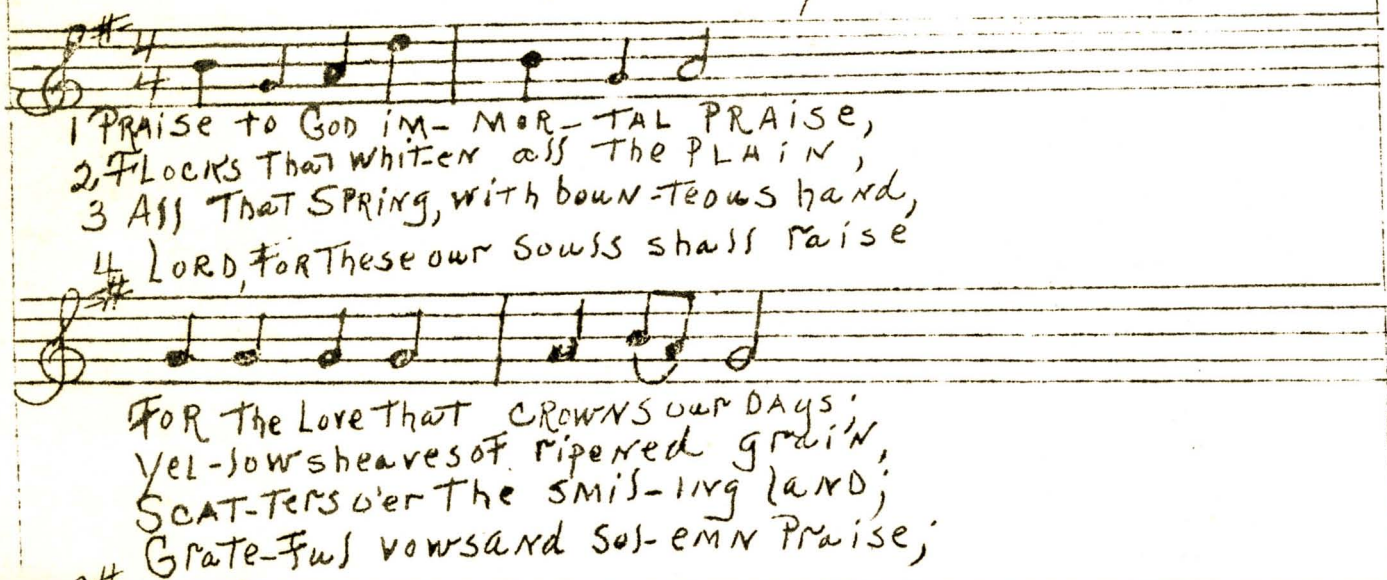 4
4
1 PRAise to GOD iM- MOR- TAL PRAise,
2, FLOCKS That whiT-EN all The PLAIN,
3 All That SPRing, with bouN-Teous haNd,
4 LORD, FoR These our souls shall raise
FOR The Love That CROWNS our DAys;
Yel-low sheaves of ripened grain,
SCAT-Ters o'er The SMil-ing laND;
Grate-Ful vows and Sol-emN Praise;